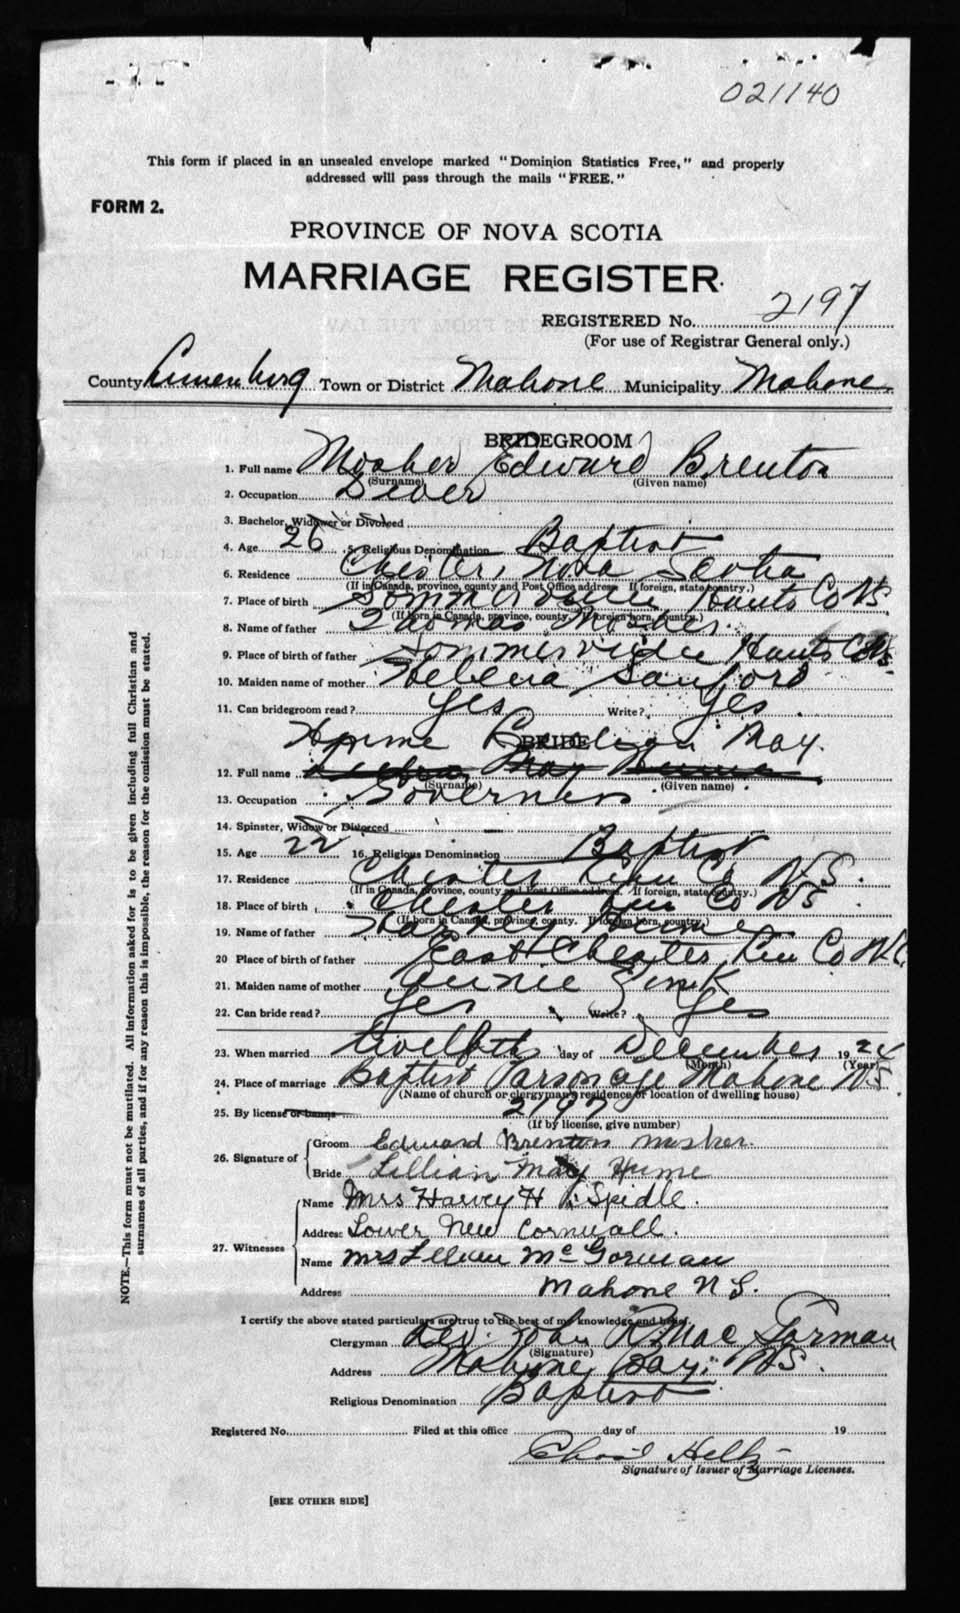 021140
This form if placed in an unsealed envelope marked "Dominion Statistics Free," and properly
addressed will pass through the mails "FREE."
FORM 2.
PROVINCE OF NOVA SCOTIA
MARRIAGE REGISTER.
REGISTERED No. 2197
(For use of Registrar General only.)
County Lunenburg Town or District Mahone Municipality Mahone
BRIDEGROOM
1. Full name Mosher Edward Brenton
(Surname) (Given name)
2. Occupation
3. Bachelor, Widower or Divorced
4. Age 26 5. Religious Denomination Baptist
6. Residence Chester, Nova Scotia
(If in Canada, province, county and Post Office address. If foreign, state country.)
7. Place of birth Hants Co NS
(If born in Canada, province, county. If foreign born, country.)
8. Name of father Thomas Mosher
9. Place of birth of father Hants Co NS
10. Maiden name of mother Sanford
11. Can bridegroom read? Yes Write? Yes
BRIDE
Hume May.
12. Full name
(Surname) (Given name)
13. Occupation Governess
14. Spinster, Widow or Divorced
15. Age 22 16. Religious Denomination Baptist
17. Residence Chester Lun Co N.S.
(If in Canada, province, county and Post Office address. If foreign, state country.)
18. Place of birth Chester Lun Co NS
(If born in Canada, province, county. If foreign born, country.)
19. Name of father Hume
20 Place of birth of father East Chester, Lun Co N.S.
21. Maiden name of mother Annie Zink
22. Can bride read? Yes Write? Yes
23. When married twelfth day of December 1924
(Month) (Year)
24. Place of marriage Baptist Parsonage Mahone NS.
(Name of church or clergyman's residence or location of dwelling house)
25. By license or banns 2197
(If by license, give number)
26. Signature of Groom Edward Brenton Mosher.
Bride Lillian May Hume
27. Witnesses Name Mrs Harvey H Spidle.
Address Lower New Cornwall.
Name Mrs Lillian McGorman
Address Mahone N S.
I certify the above stated particulars are true to the best of my knowledge and belief.
Clergyman Rev. John R. MacGorman
(Signature)
Address Mahone Bay, NS.
Religious Denomination Baptist
Registered No. Filed at this office day of 19
Signature of Issuer of Marriage Licenses.
[SEE OTHER SIDE]
NOTE.—This form must not be mutilated. All information asked for is to be given including full Christian and
surnames of all parties, and if for any reason this is impossible, the reason for the omission must be stated.